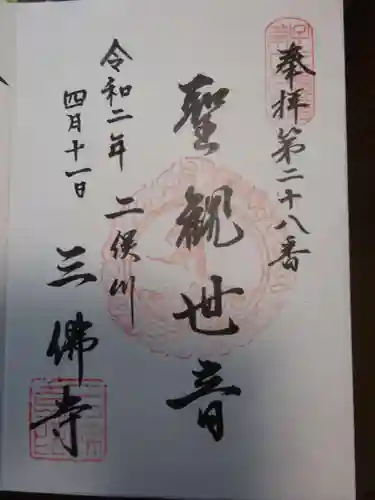 奉拝第二十八番
聖観世音
令和二年
四月十一日
二俣川
三佛寺